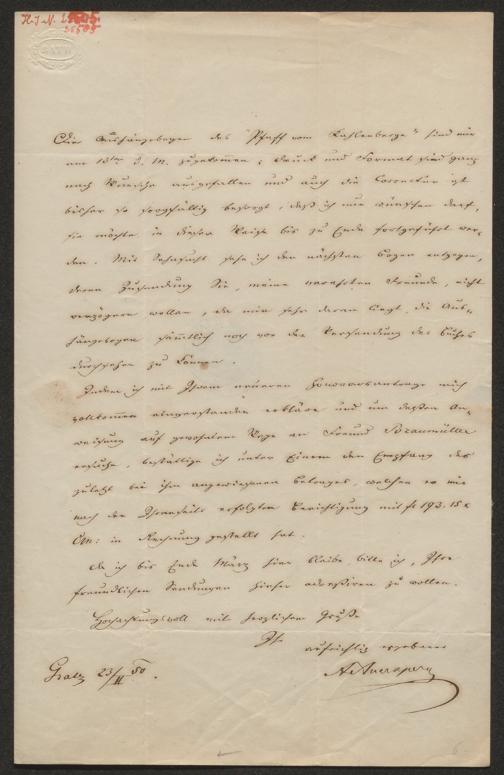 H.I.N.
25585
BATH
Die Aushängebogen des "Pfaff vom Kahlenberge" sind mir
am 18ten d. M. zugekommen; Druck und Format sind ganz
nach Wunsche ausgefallen und auch die Correctur ist
bisher so sorgfältig besorgt, daß ich nur wünschen darf,
sie möchte in dieser Weise bis zu Ende fortgeführt wer-
den. Mit Sehnsucht sehe ich den nächsten Bogen entgegen,
deren Zusendung Sie, meine verehrten Freunde, nicht
verzögern wollen, da mir sehr daran liegt, die Aus-
hängebogen sämtlich noch vor der Versendung des Buches
durchsehen zu können.
Indem ich mit Ihrem neueren Honorarsantrage mich
vollkommen einverstanden erkläre und um dessen An-
weisung auf gewohntem Wege an Freund Braumüller
ersuche, bestättige ich unter Einem den Empfang des
zuletzt bei ihm angewiesenen Betrages, welchen er mir
nach der Ihrerseits erfolgten Berichtigung mit fl 193. 15 x
CM: in Rechnung gestellt hat.
Da ich bis Ende März hier bleibe, bitte ich, Ihre
freundlichen Sendungen hieher adressiren zu wollen.
Hochachtungsvoll mit herzlichem Gruße
Ihr
aufrichtig ergebener
AAuersperg
Gratz 23/II 50.
6